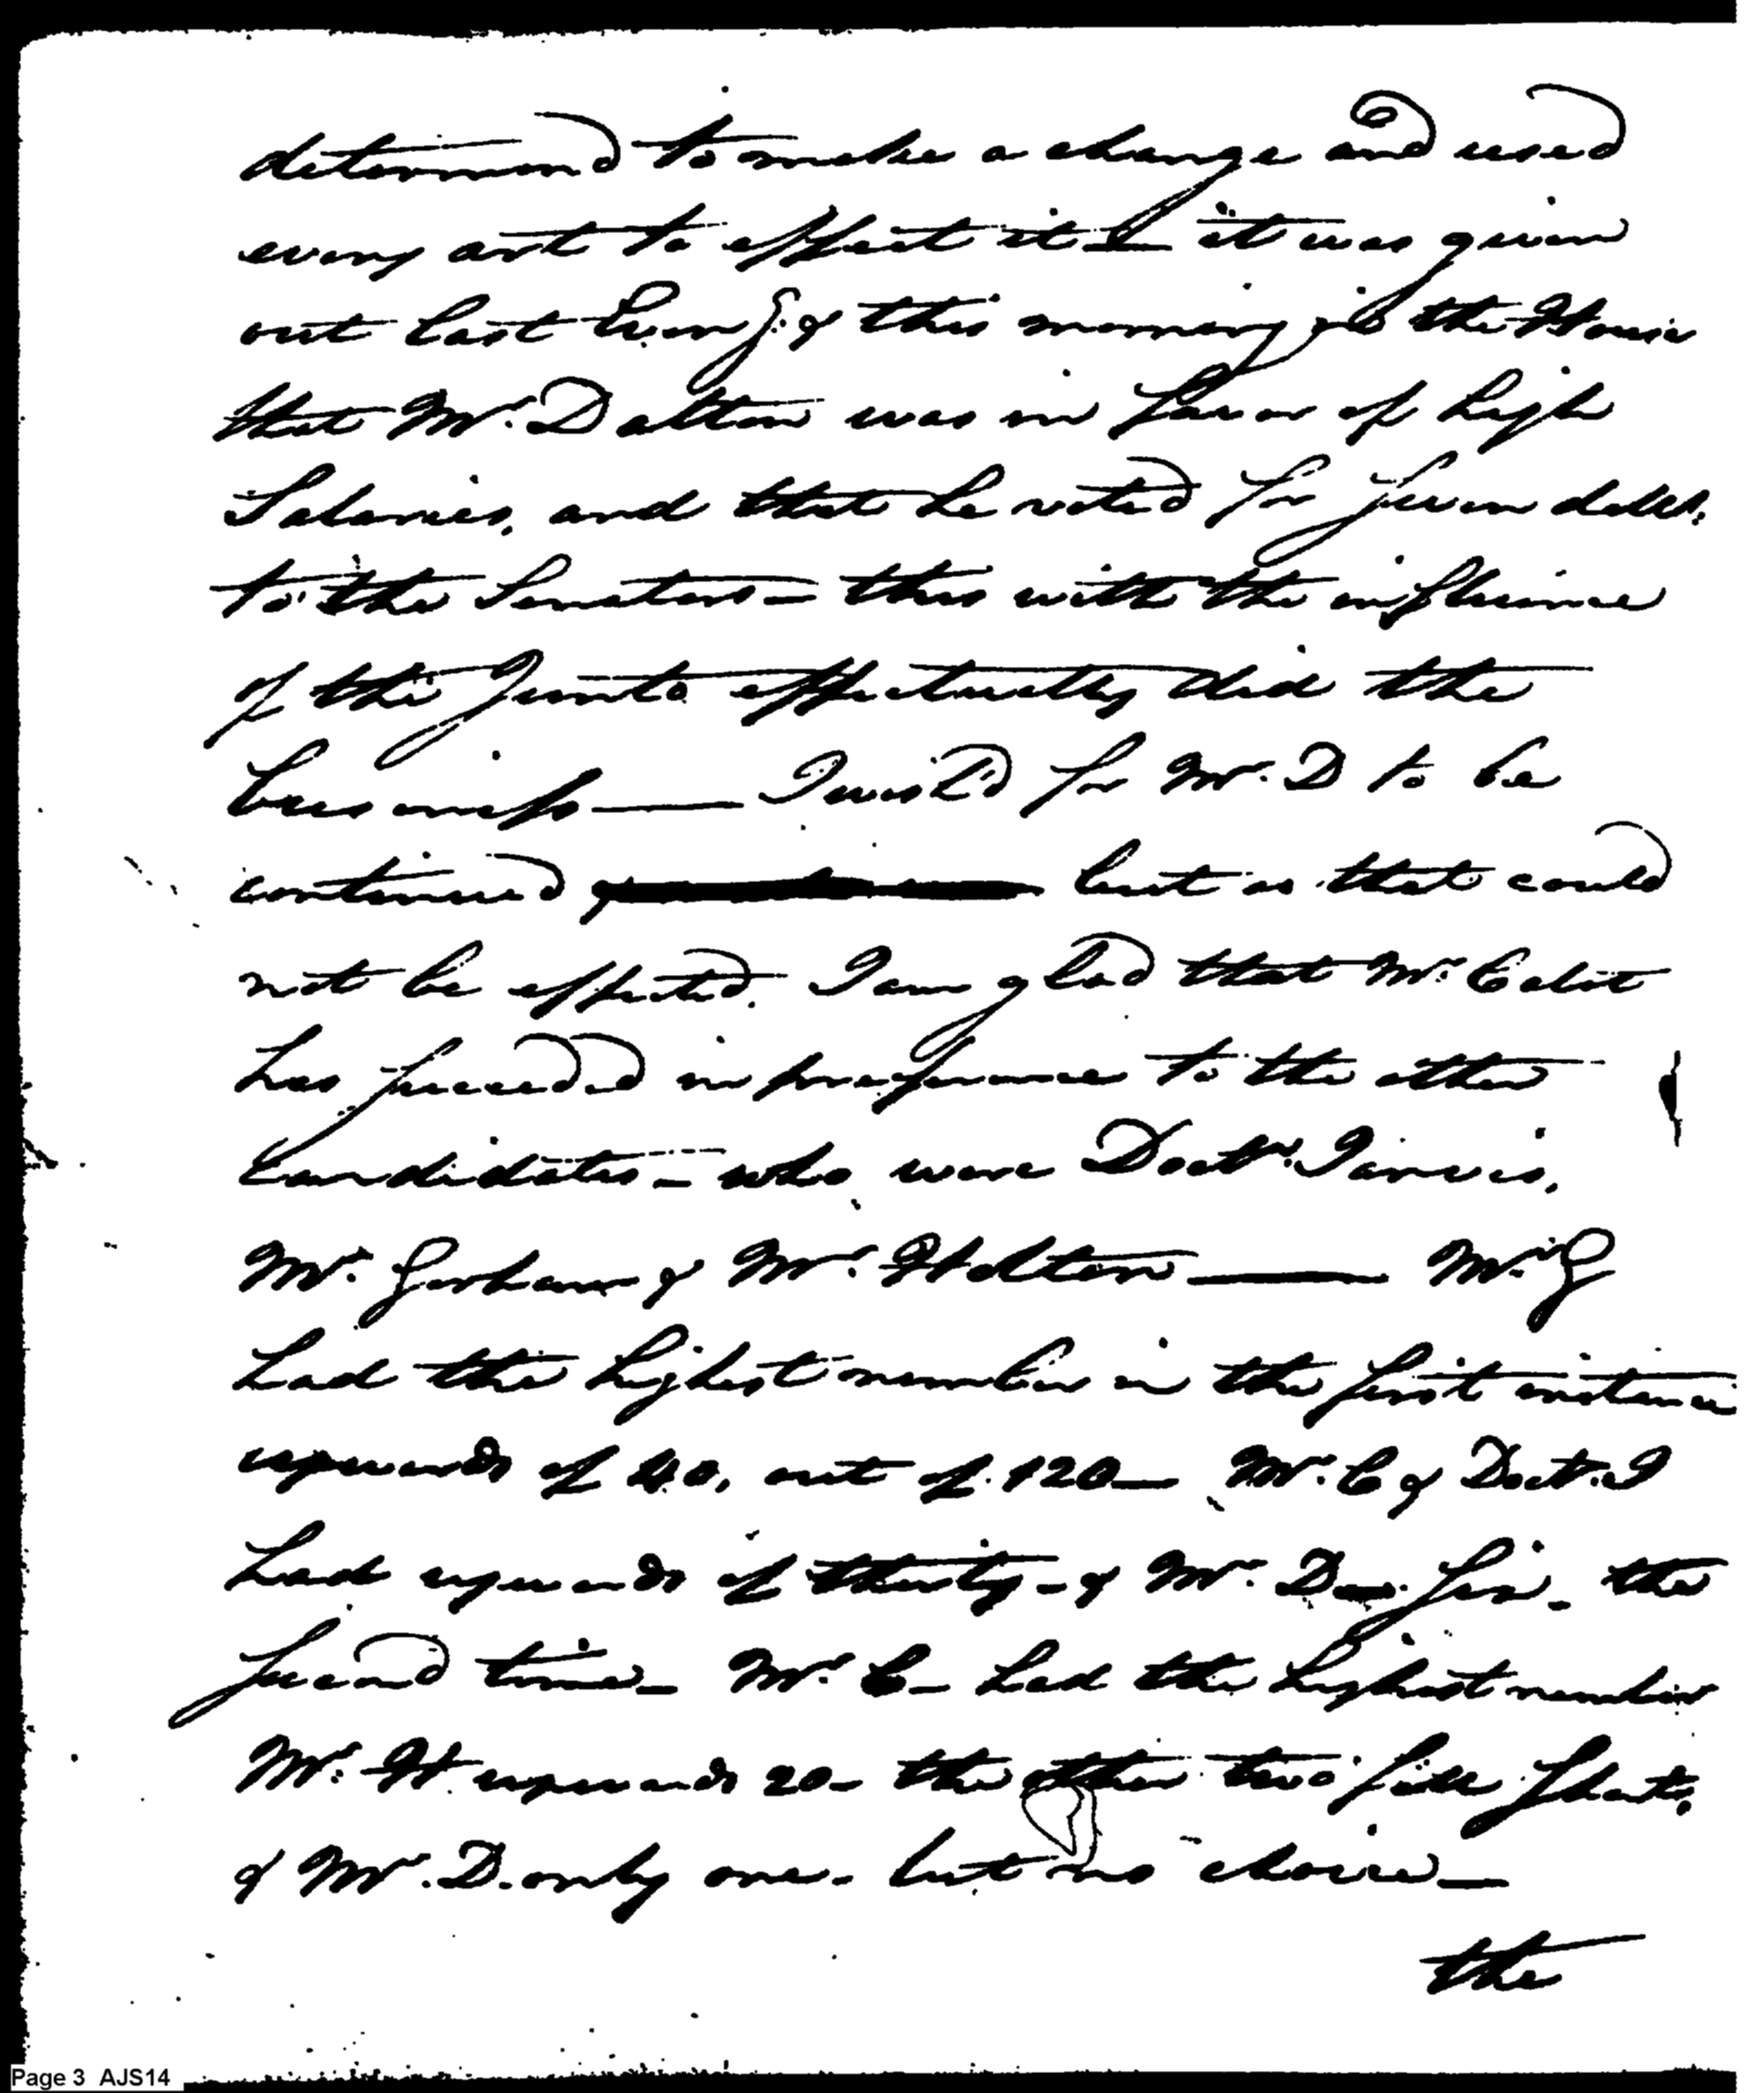 determined to make a change and used
every art to effect it & it was given
out last Eveng. & this morning in the House
that Mr. Dalton was in favor of high
Salaries, and that he voted for seven dolls.
to the Senators — this with the influence
of the Junto effectually did the
business — I wish'd for Mr. D to be
continued but as that could
not be effected. I am glad that Mr. Cabot
has succeeded in preference to the other
Candidates — who were Doctr. Jarvis,
Mr. Gorham & Mr. Holton — Mr. G
had the highest number in the first instance
upwards of 40, out of 120 — Mr. C & Doct. J
had upwards of thirty — & Mr. D. six. the
second time — Mr. C — had the highest number
Mr. H upwards 20 — the other two fell short.
& Mr. D. only one. but no choice —
the
Page 3 AJS14